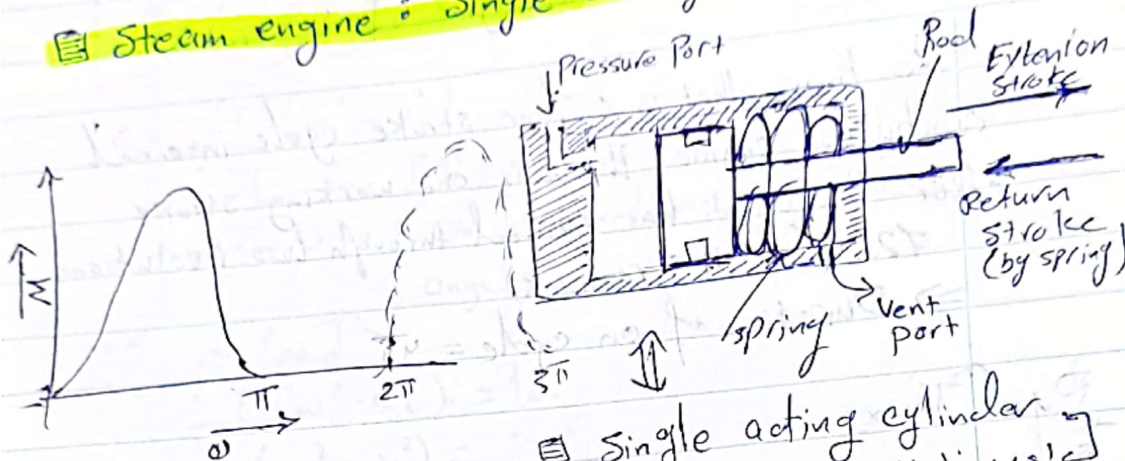 Steam engine : Single
Pressure Port
Rod
Extenion
Stroke
Return
Stroke
(by spring)
Vent
port
spring
M
π
2π
3π
Single acting cylinder